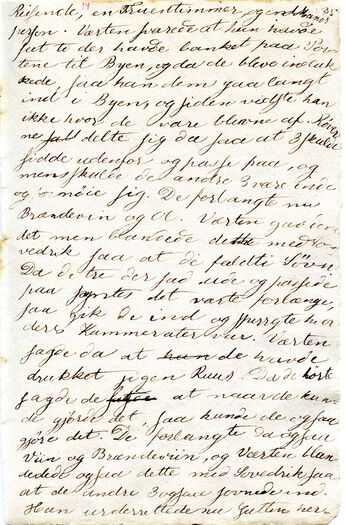 Reisende, en Fruentimmer, og en Mands 35
person. Værten svarede at han havde
seet to der havde banket paa Por
tene til Byen, og da de bleve indluk
kede, saa han dem gaa langt
ind i Byen, og siden vidste han
ikke hvor de vare blevne af. Røver
ne delte sig da saa at 3 skulde
sidde udenfor og passe paa, og
mens skulde de andre 3 være inde
og more sig. De forlangte nu
Brændeviin og Øl. Værten gav dem
det men blandede dette med So
vedrik saa at de faldt i Søvn.
Da de tre der sad ude og passede
paa syntes det varte forlænge,
saa gik de ind og spurgte hvor
ders Kammerater var. Værten
sagde da at han de havde
drukket sigen Ruus. Da de hørte
sagde de at naar de kun
de gjøre det, saa kunde de ogsaa
gjøre det. De forlangte da ogsaa
Viin og Brændeviin, og Værten blan
dede ogsaa dette med Sovedrik saa
at de andre 3 ogsaa sovnede ind.
Han underrettede nu Gutten her